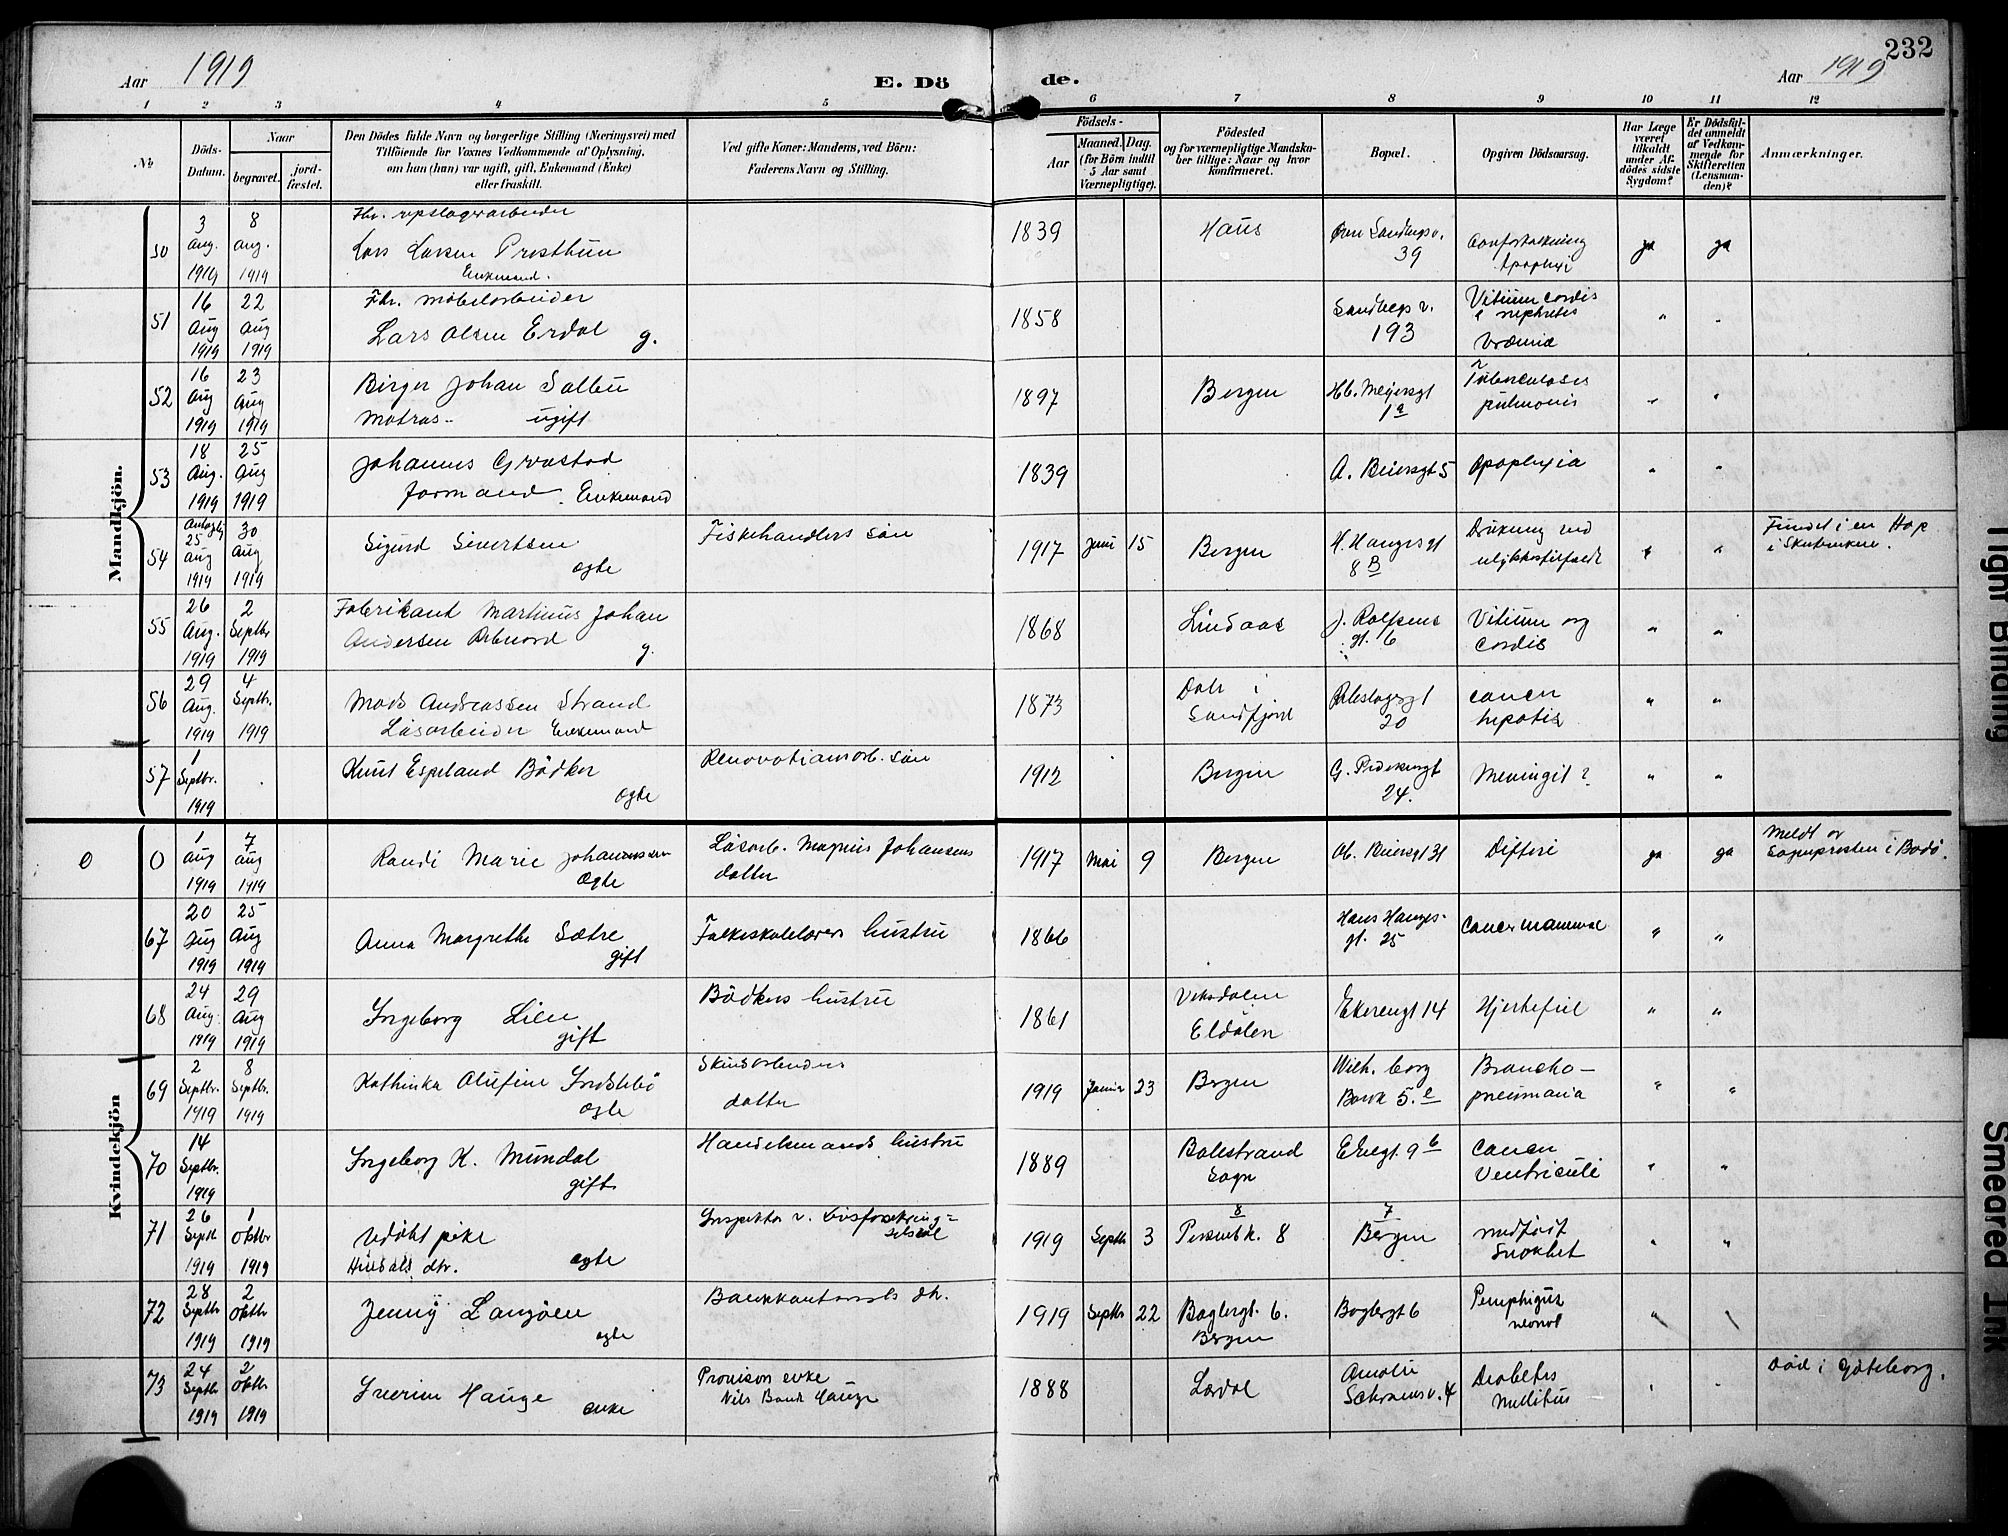 Aar 1919
E. Dö
de.
Aar 1919
232
1 2 3 4 5 6 7 8 9 10 11 12
No
Döds-
Datum.
Naar
begravet.
jord-
fæstet.
Den Dödes fulde Navn og borgerlige Stilling (Næringsvei) med
Tilföiende for Voxnes Vedkommende af Oplysning,
om han (hun) var ugift, gift, Enkemand (Enke)
eller fraskilt.
Ved gifte Koner: Mandens, ved Börn:
Faderens Navn og Stilling.
Födsels-
Aar
Maaned.
Dag.
(for Börn indtil
5 Aar samt
Værnepligtige).
Födested
og for værnepligtige Mandska-
ber tillige: Naar og hvor
konfirmeret.
Bopæl.
Opgiven Dödsaarsag.
Har Læge
været
tilkaldt
under Af-
dödes sidste
Sygdom?
Er Dödsfal-
det anmeldt
af Vedkom-
mende for
Skifteretten
(Lensman-
den)?
Anmærkninger.
Mandkjön.
50 3 Aug. 1919 8 Aug. 1919
Lars Larsen Presthun
Enkemand.
1839 Haus 39 Apoplexi ja ja
51 16 Aug 1919 22 Aug 1919
Fhr. möbelarbeider
Lars Olsen Erdal g.
1858 Sandbergs v. 193 Vitium cordis nephritis Uræmia " "
52 16 Aug 1919 23 Aug 1919
Birger Johan Saltbu
Matros ugift
1897 Bergen Hb. Meyersgt 1a Tuberculosis pulmonis " "
53 18 Aug. 1919 25 Aug 1919
Johannes Graastad
Formand. Enkemand
1839 A. Beiersgt 5 Apoplexia " "
54 Antagelig 25 Aug 1919 30 Aug 1919
Sigurd Sivertsen
ægte
Fiskehandlers sön
1917 Juni 15 Bergen H. Haugesgt 8 B Drukning ved ulykkestilfælde " "
Fundet i en
55 26 Aug. 1919 2 Septbr 1919
Fabrikant Martinus Johan
Andersen g.
1868 Lindaas J. Rolfsens gt. 6 Vitium org cordis " "
56 29 Aug. 1919 4 Septbr. 1919
Mads Andreassen Strand
Lösarbeider Enkemand
1873 Dale i Söndfjord 20 cancer hepatis " "
57 1 Septbr. 1919
Knut Espeland Bödker
ægte
Renovationsarb. sön
1912 Bergen 24. Meningit? " "
Kvindekjön
0 0 1 Aug 1919 7 Aug 1919
Randi Marie Johannessen
ægte
Lösarb. Magnus Johansens
datter
1917 Mai 9 Bergen Ab. Beiersgt 31 Difteri ja ja
Meldt av
Sognepresten i Bodö.
67 20 Aug 1919 25 Aug 1919
Anna Margrethe Sætre
gift
Folkeskolelærers hustru
1866 Hans Hauges- gt. 25 Cancer mammae " "
68 24 Aug. 1919 29 Aug 1919
Ingeborg Lien
gift
Bödkers hustru
1861 Eldalen Ekerengt 14 Hjertefeil " "
69 2 Septbr. 1919 8 Septbr. 1919
Kathinka Olufine Indrebö
ægte
datter
1919 Januar 23 Bergen 5. e Broncho-
pneumonia " "
70 14 Septbr. 1919
Ingeborg K. Mundal
gift
Handelsmands hustru
1889 Balestrand
Sogn 9 b Cancer
Ventriculi " "
71 26 Septbr 1919 1 Oktbr 1919
Udöbt pike
dtr. ægte
Inspektör v. Livsforsikrings=
selskab
1919 Septbr 3 8 7 Bergen medfödt
svakhet " "
72 28 Septbr 1919 2 Oktbr 1919
Jenny Langöen
ægte
1919 Septbr 22 Baglergt. 6.
Bergen Baglergt 6 Pemphigus
neonat " "
73 24 Septbr 1919 2 Oktbr 1919
Severine Hauge
enke
Provisor enke
Nils Hauge
1888 Lærdal Amalie
Schrams v. 4 Diabetes
Mellitus
död i Göteborg.
Tight Binding
Smeared Ink